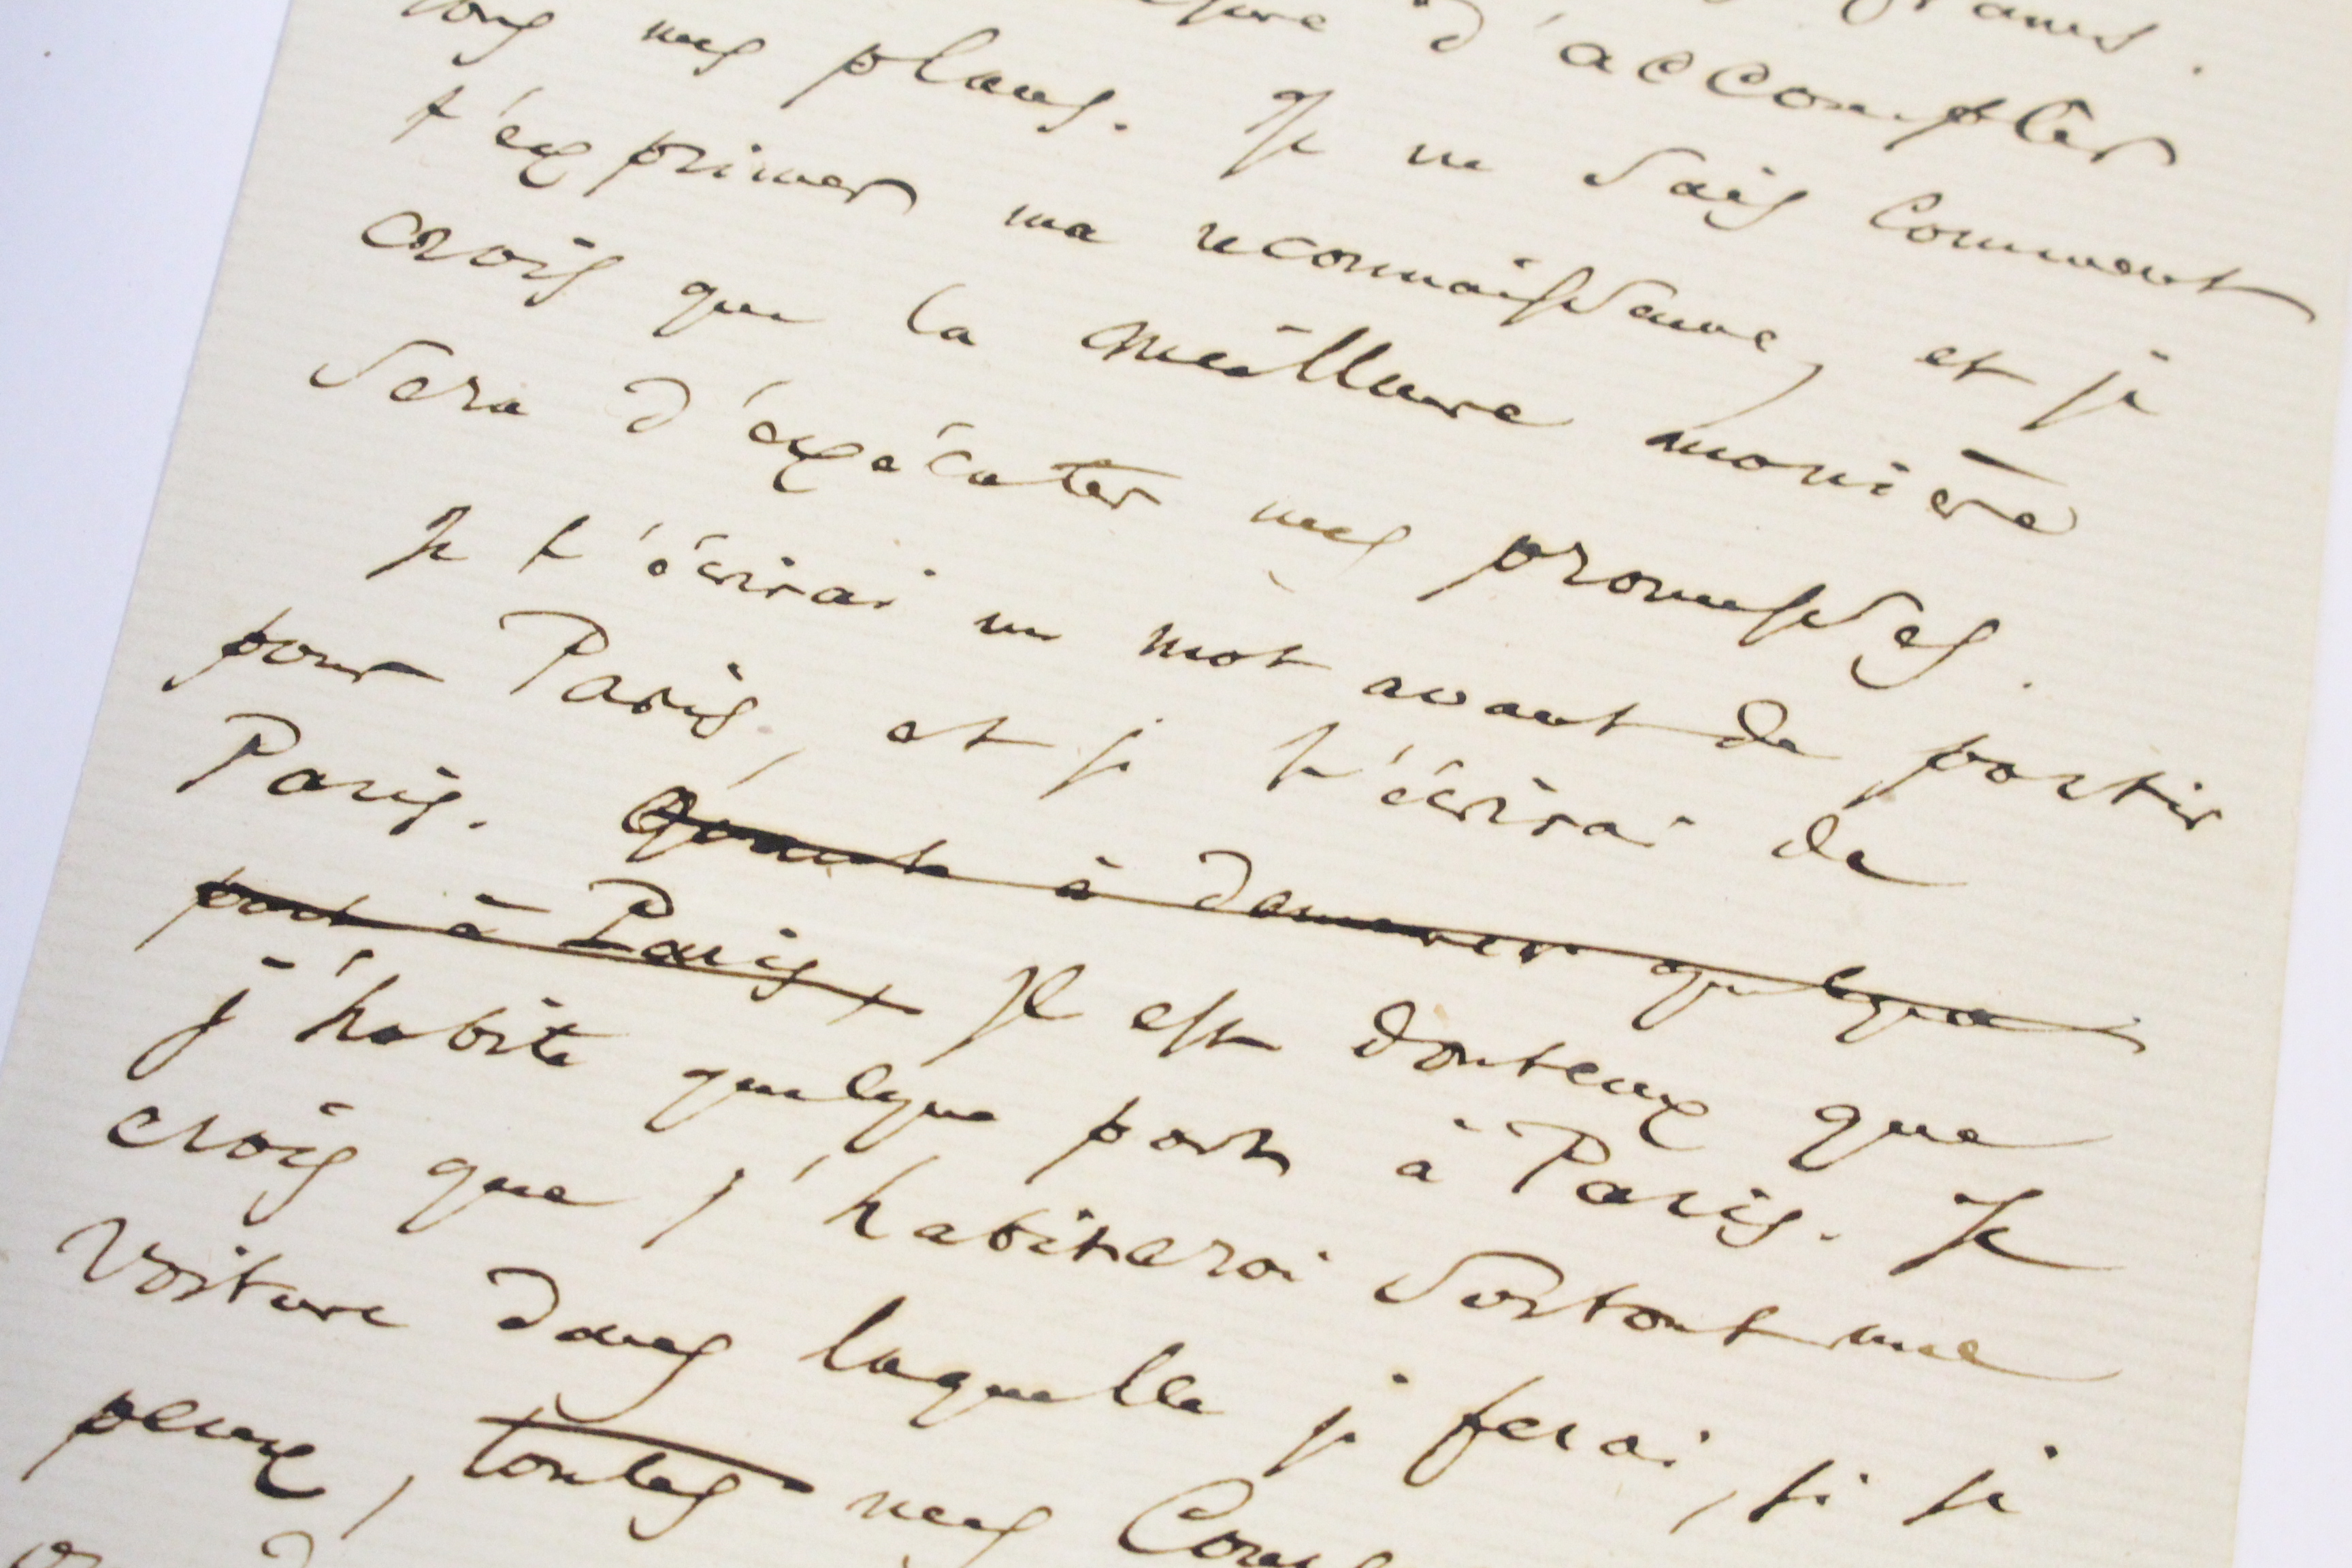 d'accomplir
tous mes plans. Je ne sais comment
t'exprimer ma reconnaissance, et je
crois que la meilleure manière
sera d'exécuter mes promesses.
Je t'écrirai un mot avant de partir
pour Paris, et je t'écrirai de
Paris. Quant à demeurer quelque
part à Paris, Il est douteux que
j'habite quelque part à Paris. Je
crois que j'habiterai surtout une
voiture dans laquelle je ferai, si je
peux, toutes mes